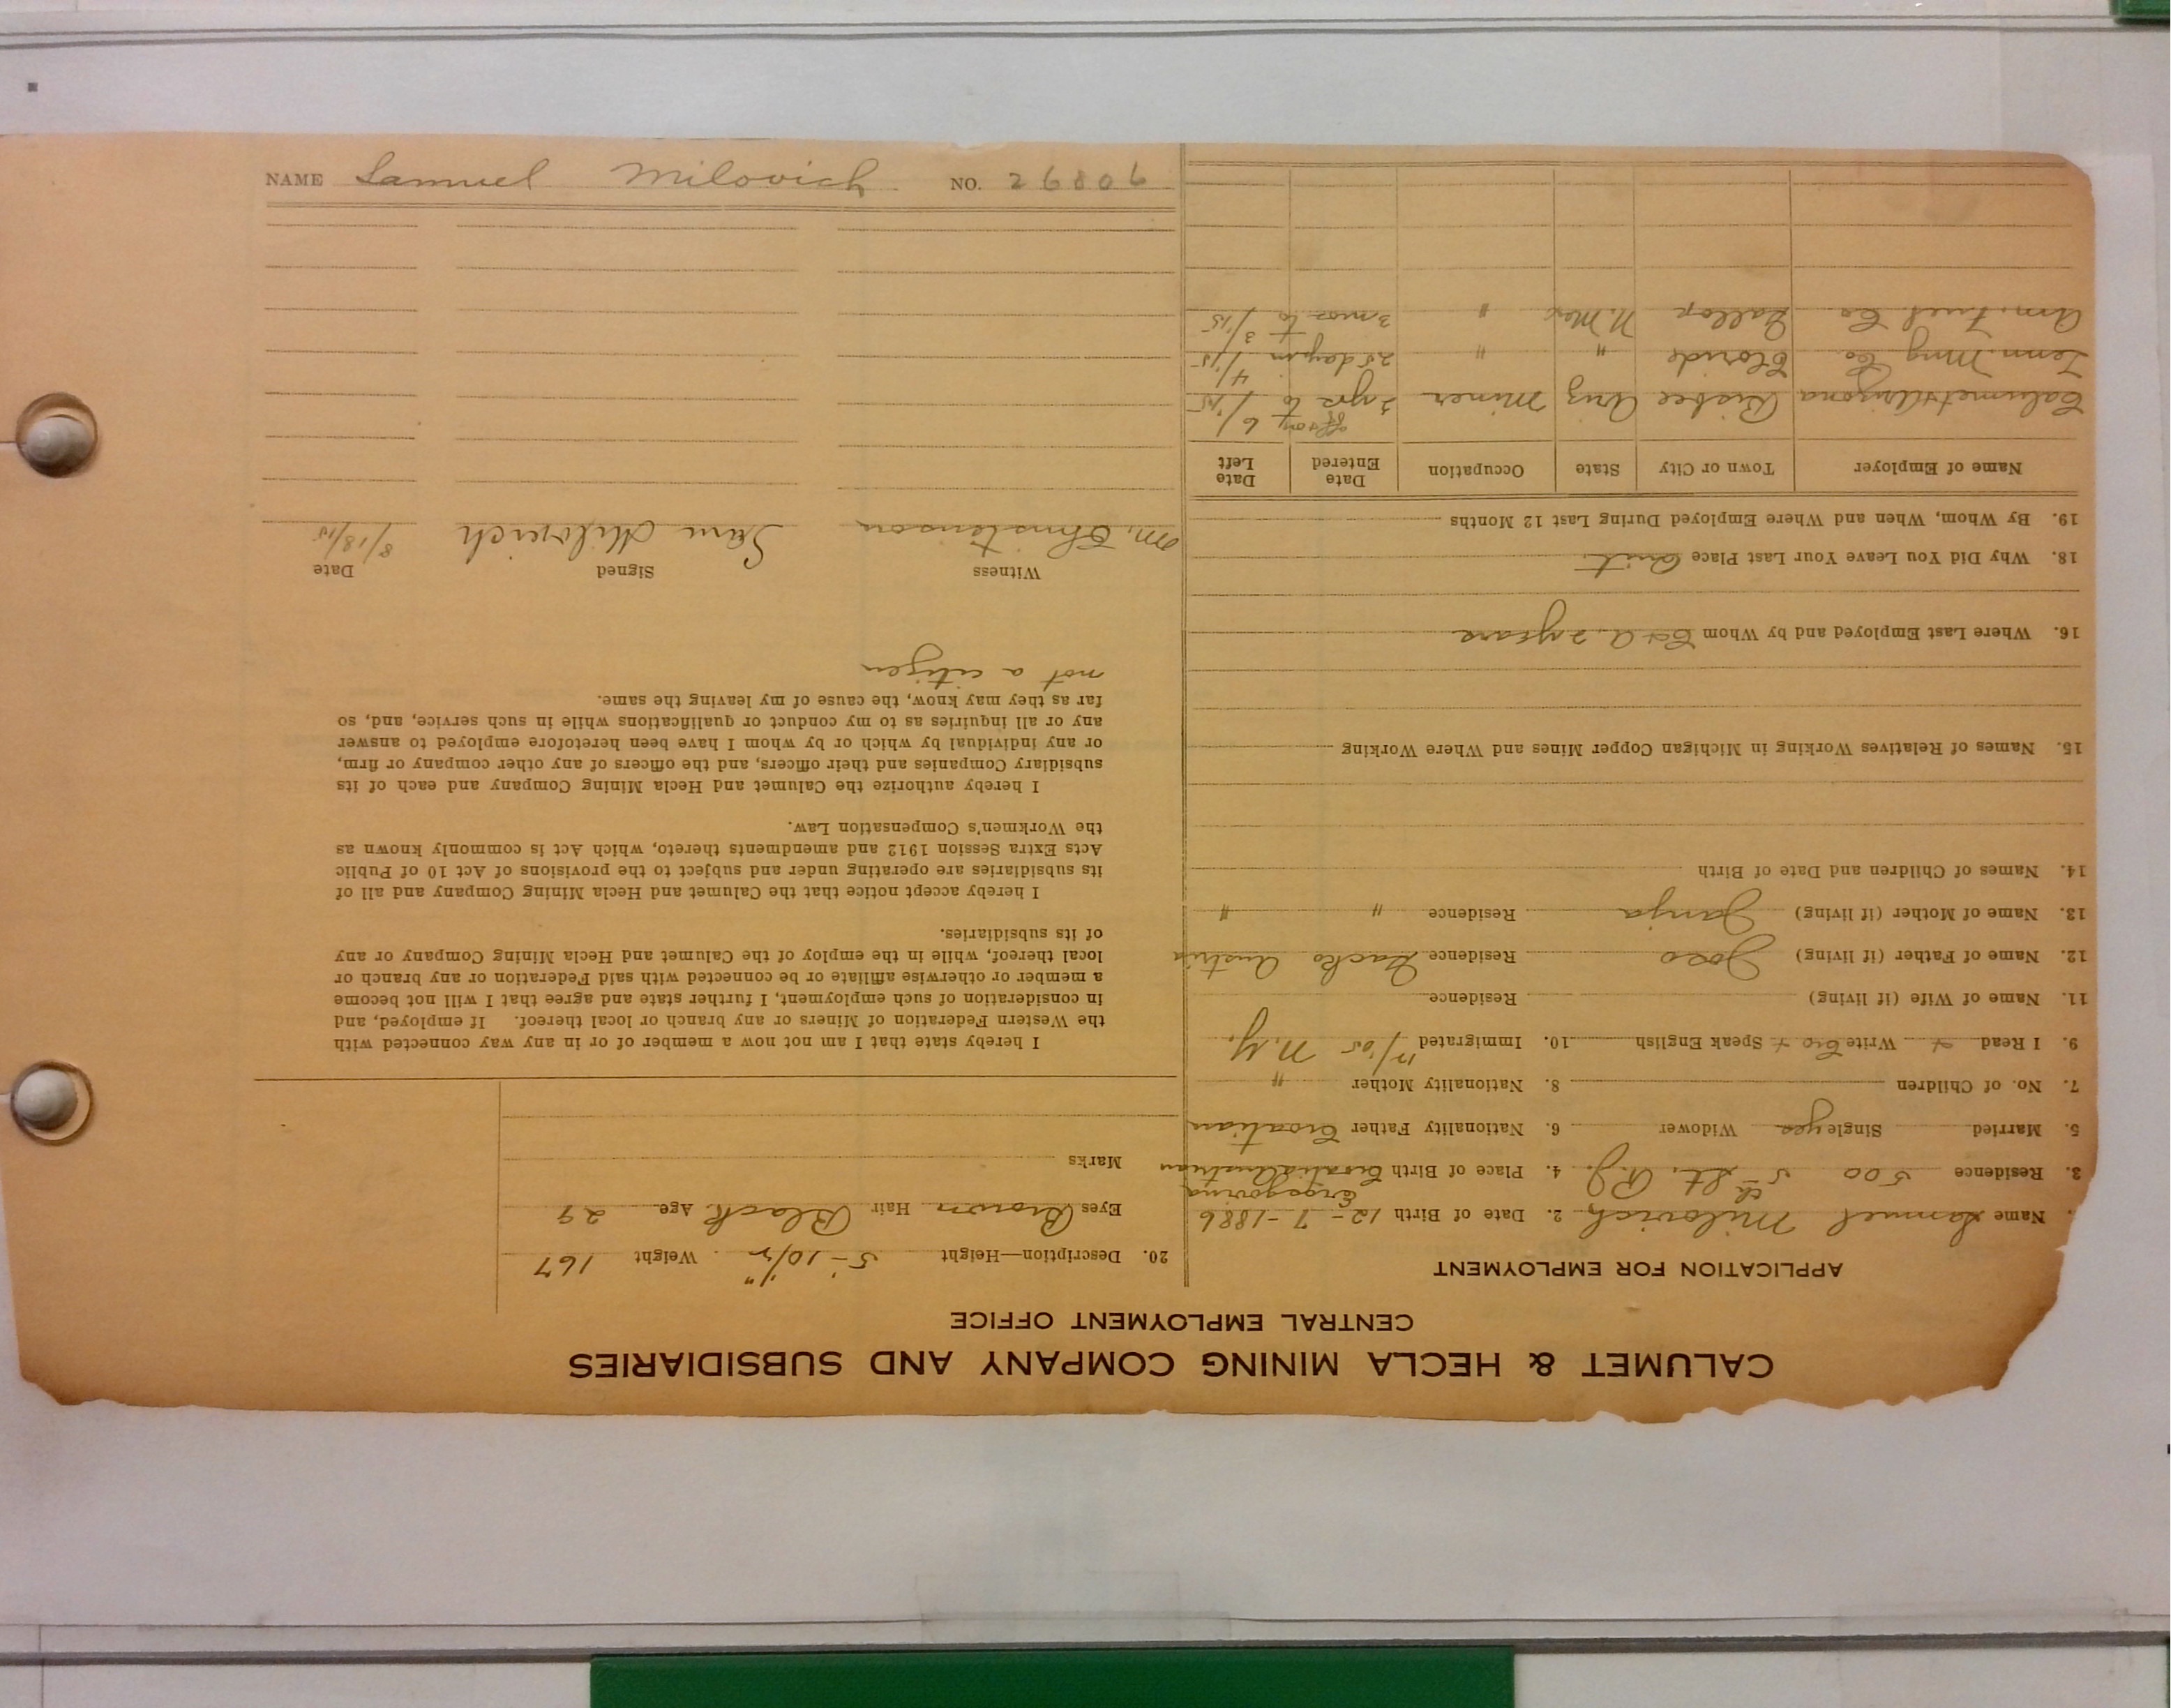 CALUMET & HECLA MINING COMPANY AND SUBSIDIARIES
CENTRAL EMPLOYMENT OFFICE
APPLICATION FOR EMPLOYMENT
Name Samuel Milovich 2. Date of Birth 12-7-1886
3. Residence 500 5th St. R.J. 4. Place of Birth Ercegovina
5. Married Single yes Widower 6. Nationality Father Croatian
7. No. of Children 8. Nationality Mother "
9. I Read + Write Cro + Speak English 10. Immigrated 12/05 N.Y.
11. Name of Wife (if living) Residence
12. Name of Father (if living) Joso Residence Austria
13. Name of Mother (if living) Janja Residence " "
14. Names of Children and Date of Birth
15. Names of Relatives Working in Michigan Copper Mines and Where Working
16. Where Last Employed and by Whom C+A 2 years
18. Why Did You Leave Your Last Place Quit
19. By Whom, When and Where Employed During Last 12 Months
Name of Employer Town or City State Occupation Date Entered Date Left
Calumet+Arizona Bisbee Ariz Miner 2 yrs to 6/1/15
Tenn. Mng Co Cloride " " 25 days in 4/1/15
Am. Fuel Co Gallop N. Mex " 3 mos to 3/1/15
20. Description—Height 5'-10½" Weight 167
Eyes Brown Hair Black Age 29
Marks
I hereby state that I am not now a member of or in any way connected with
the Western Federation of Miners or any branch or local thereof. If employed, and
in consideration of such employment, I further state and agree that I will not become
a member or otherwise affiliate or be connected with said Federation or any branch or
local thereof, while in the employ of the Calumet and Hecla Mining Company or any
of its subsidiaries.
I hereby accept notice that the Calumet and Hecla Mining Company and all of
its subsidiaries are operating under and subject to the provisions of Act 10 of Public
Acts Extra Session 1912 and amendments thereto, which Act is commonly known as
the Workmen's Compensation Law.
I hereby authorize the Calumet and Hecla Mining Company and each of its
subsidiary Companies and their officers, and the officers of any other company or firm,
or any individual by which or by whom I have been heretofore employed to answer
any or all inquiries as to my conduct or qualifications while in such service, and, so
far as they may know, the cause of my leaving the same.
not a citizen
Witness Signed Date
M. Christenson Sam Milovich 8/18/15
NAME Samuel Milovich NO. 26806